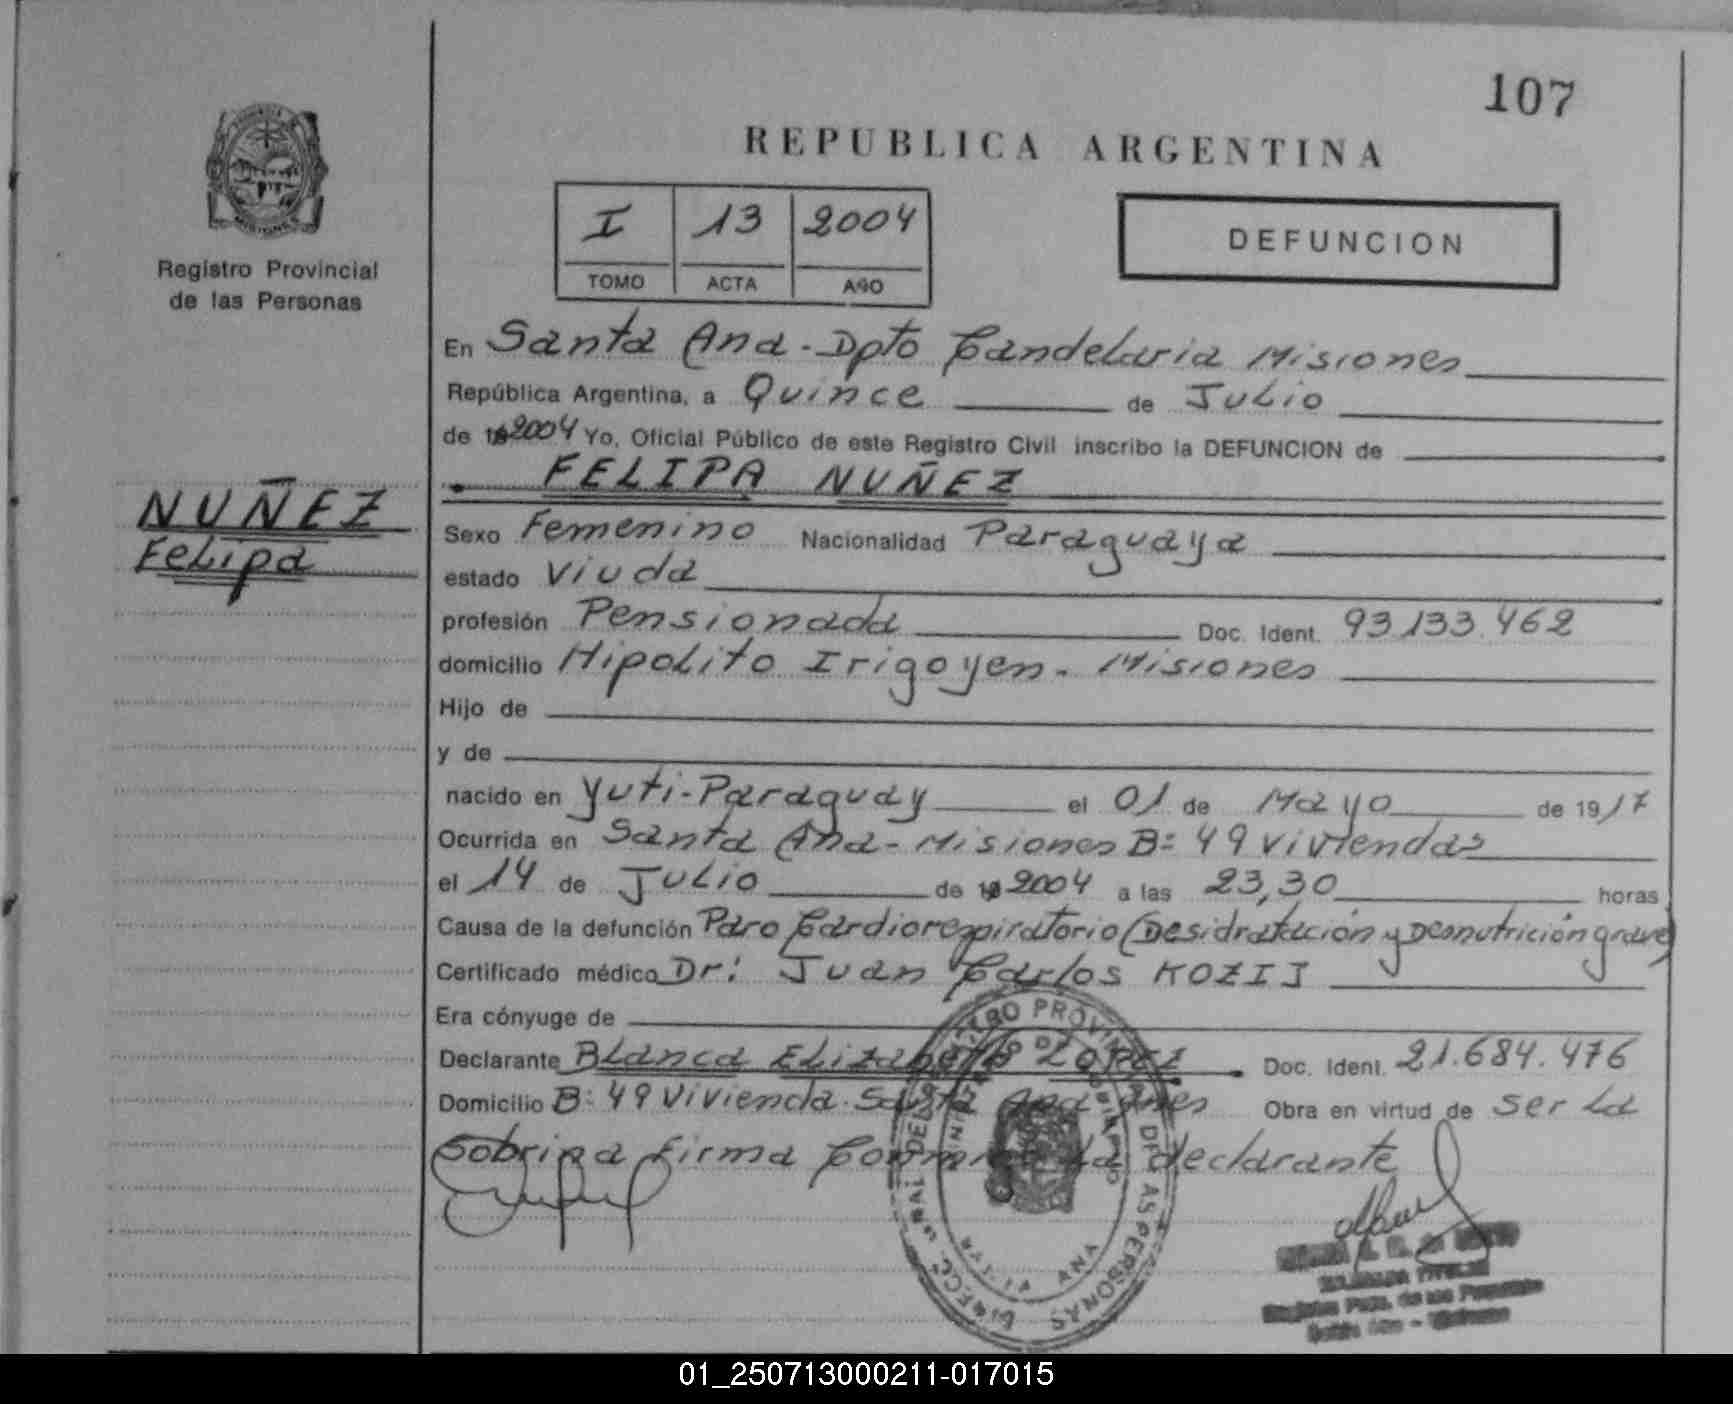 107
REPUBLICA ARGENTINA
I 13 2004
TOMO ACTA AÑO
DEFUNCION
Registro Provincial
de las Personas
En Santa Ana - Dpto Candelaria Misiones
República Argentina, a Quince de Julio
de 2004 Yo, Oficial Público de este Registro Civil inscribo la DEFUNCION de
FELIPA NUÑEZ
NUÑEZ
Felipa
Sexo Femenino Nacionalidad Paraguaya
estado Viuda
profesión Pensionada Doc. Ident. 93.133.462
domicilio Hipolito Irigoyen - Misiones
Hijo de
y de
nacido en Yuti - Paraguay el 01 de Mayo de 1917
Ocurrida en Santa Ana - Misiones B: 49 viviendas
el 14 de Julio de 2004 a las 23,30 horas
Causa de la defunción Paro Cardiorespiratorio (Desidratación y Desnutrición grave)
Certificado médico Dr: Juan Carlos KOZIJ
Era cónyuge de
Declarante Blanca Elizabeth LOPEZ Doc. Ident. 21.684.476
Domicilio B: 49 Vivienda Santa Ana Mnes Obra en virtud de Ser la
Sobrina firma Conmigo la declarante
DIRECC. GRAL DEL REGISTRO PROVINCIAL DE LAS PERSONAS
SANTA ANA
01_250713000211-017015